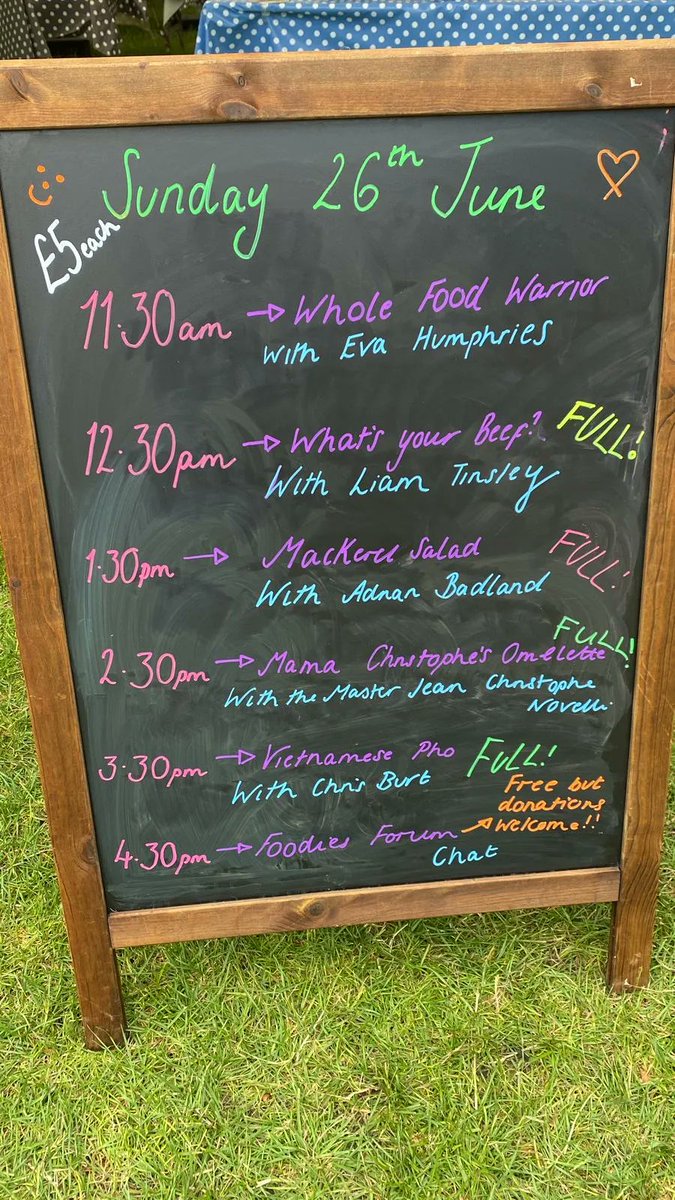 Sunday 26th June
£5 each
11.30am → Whole Food Warrior
With Eva Humphries
12.30pm → What's your Beef? FULL!
With Liam Tinsley
1.30pm → Mackerel Salad FULL!
With Adnan Badland
FULL!
2.30pm → Mama Christophe's Omelette
With the Master Jean Christophe
Novelli
3.30pm → Vietnamese Pho FULL!
With Chris Burt
Free but
donations
4.30pm → Foodies Forum → Welcome!!
Chat